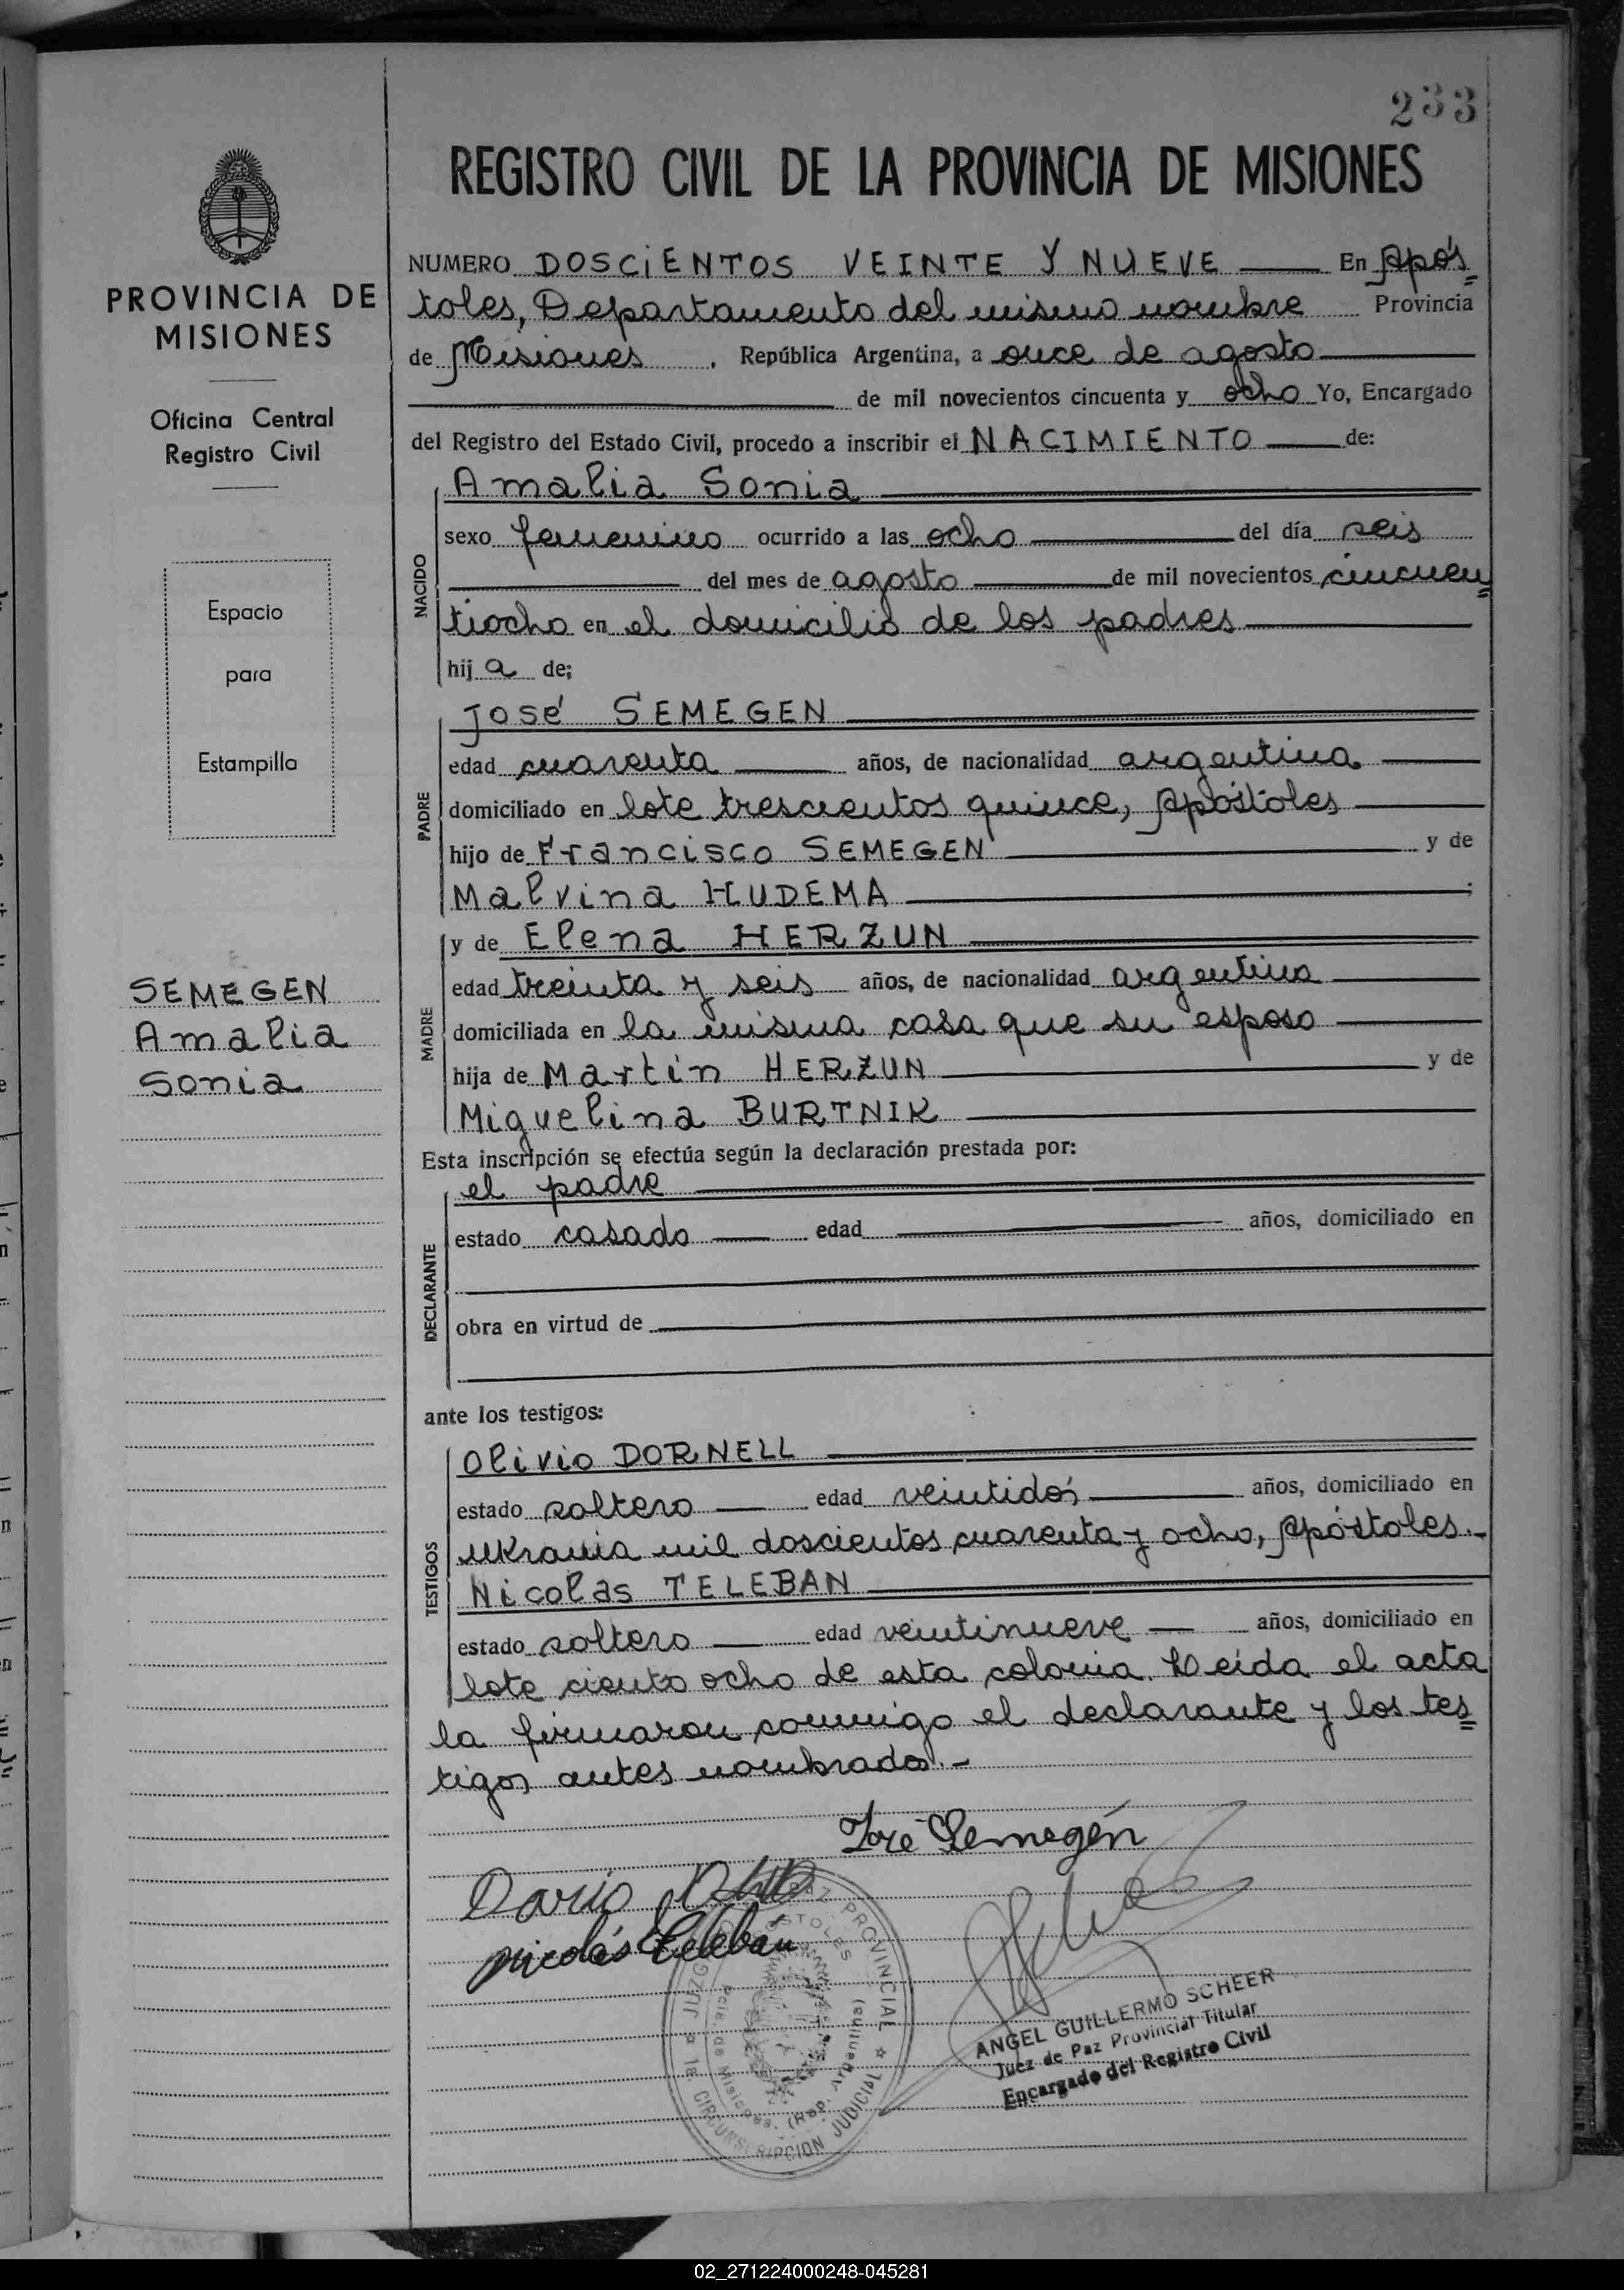 233
REGISTRO CIVIL DE LA PROVINCIA DE MISIONES
PROVINCIA DE
MISIONES
Oficina Central
Registro Civil
Espacio
para
Estampilla
SEMEGEN
Amalia
Sonia
NUMERO DOSCIENTOS VEINTE Y NUEVE En Após
toles, Departamento del mismo nombre Provincia
de Misiones, República Argentina, a once de agosto
de mil novecientos cincuenta y ocho Yo, Encargado
del Registro del Estado Civil, procedo a inscribir el NACIMIENTO de:
NACIDO
Amalia Sonia
sexo femenino ocurrido a las ocho del día seis
del mes de agosto de mil novecientos cincuen
tiocho en el domicilio de los padres
hija de;
PADRE
José SEMEGEN
edad cuarenta años, de nacionalidad argentina
domiciliado en lote trescientos quince, Apóstoles
hijo de Francisco SEMEGEN y de
Malvina HUDEMA ;
MADRE
y de Elena HERZUN
edad treinta y seis años, de nacionalidad argentina
domiciliada en la misma casa que su esposo
hija de Martin HERZUN y de
Miguelina BURTNIK
Esta inscripción se efectúa según la declaración prestada por:
DECLARANTE
el padre
estado casado edad años, domiciliado en
obra en virtud de
ante los testigos:
TESTIGOS
Olivio DORNELL
estado soltero edad veintidós años, domiciliado en
Ukrania mil doscientos cuarenta y ocho, Apóstoles.-
Nicolas TELEBAN
estado soltero edad veintinueve años, domiciliado en
lote ciento ocho de esta colonia. Leída el acta
la firmaron conmigo el declarante y los tes
tigos antes nombrados.-
José Semegén
Nicolás Teleban
JUZGADO DE PAZ PROVINCIAL
APOSTOLES
Pcia. de Misiones. (Rep. Argentina)
1a. CIRCUNSCRIPCION JUDICIAL
ANGEL GUILLERMO SCHEER
Juez de Paz Provincial Titular
Encargado del Registro Civil
02_271224000248-045281